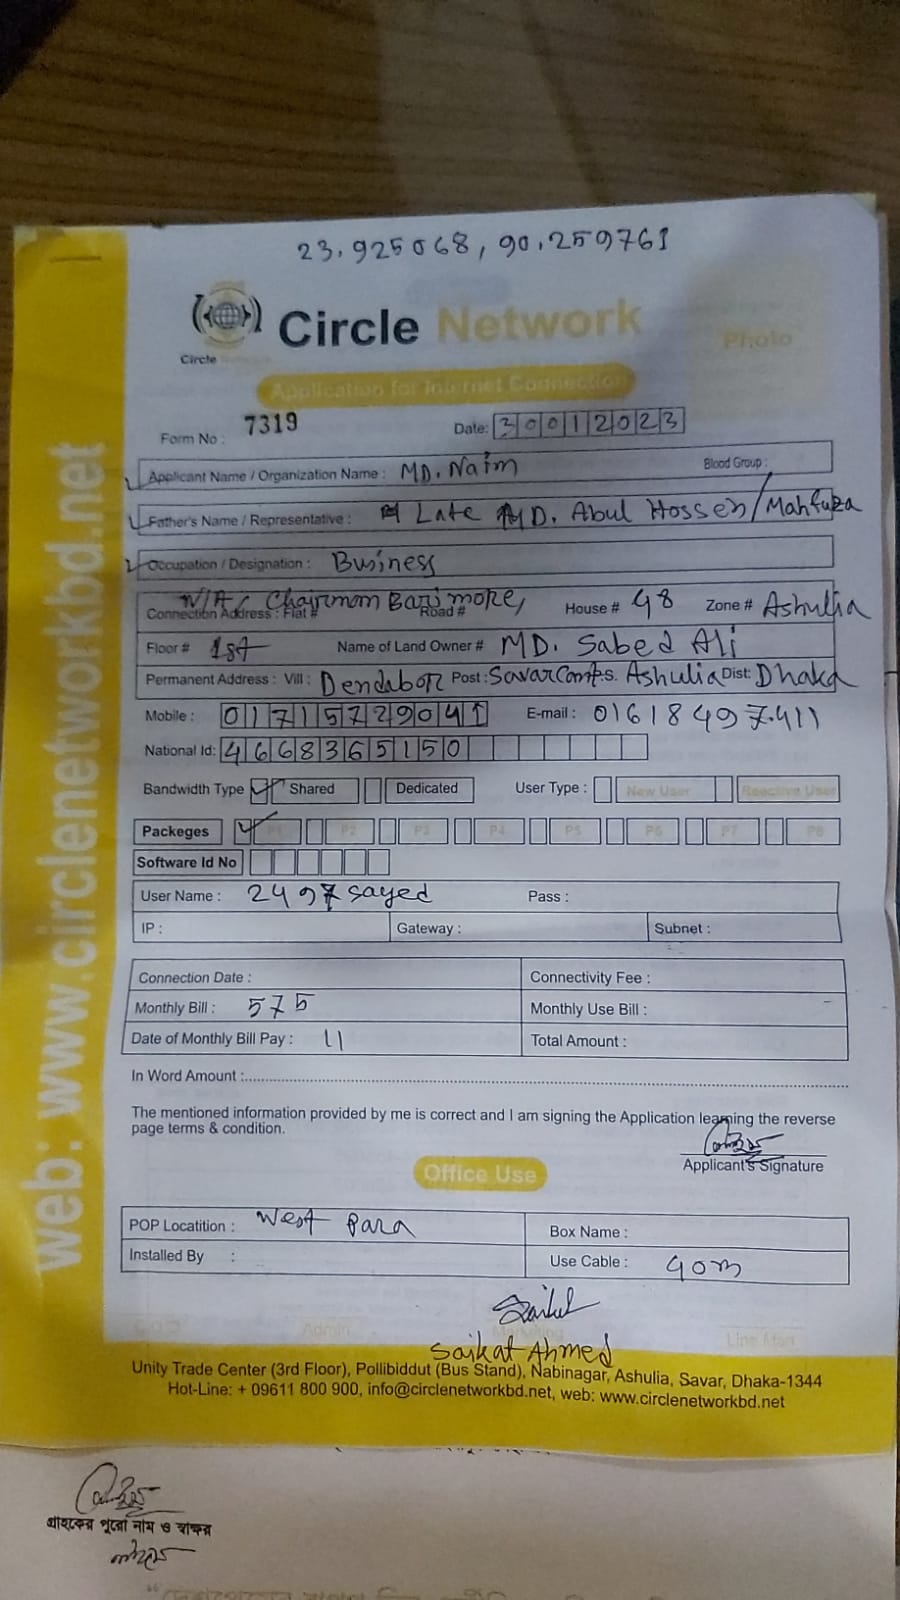 23.925068, 90.259761
Circle Network
Circle Network
Photo
Application for Internet Connection
Form No : 7319 Date: 30012023
Applicant Name / Organization Name : MD. Naim Blood Group :
Father's Name / Representative : Late MD. Abul Hossen / Mahfuza
Occupation / Designation : Business
N/A, Chairman Bari more,
Connection Address : Flat # Road # House # 48 Zone # Ashulia
Floor # 1st Name of Land Owner # MD. Sabed Ali
Permanent Address : Vill : Dendabor Post : Savar Cant P.S. Ashulia Dist: Dhaka
Mobile : 01715729041 E-mail : 01618497411
National Id: 4668365150
Bandwidth Type Shared Dedicated User Type : New User Reactive User
Packeges P1 P2 P3 P4 P5 P6 P7 P8
Software Id No
User Name : 2497sayed Pass :
IP : Gateway : Subnet :
Connection Date : Connectivity Fee :
Monthly Bill : 575 Monthly Use Bill :
Date of Monthly Bill Pay : 11 Total Amount :
In Word Amount :
The mentioned information provided by me is correct and I am signing the Application learning the reverse
page terms & condition.
Applicant's Signature
Office Use
POP Locatition : West Para Box Name :
Installed By : Use Cable : 90m
Saikat Ahmed
Admin Marketing Line Man
Unity Trade Center (3rd Floor), Pollibiddut (Bus Stand), Nabinagar, Ashulia, Savar, Dhaka-1344
Hot-Line: + 09611 800 900, info@circlenetworkbd.net, web: www.circlenetworkbd.net
web: www.circlenetworkbd.net
গ্রাহকের পুরো নাম ও স্বাক্ষর